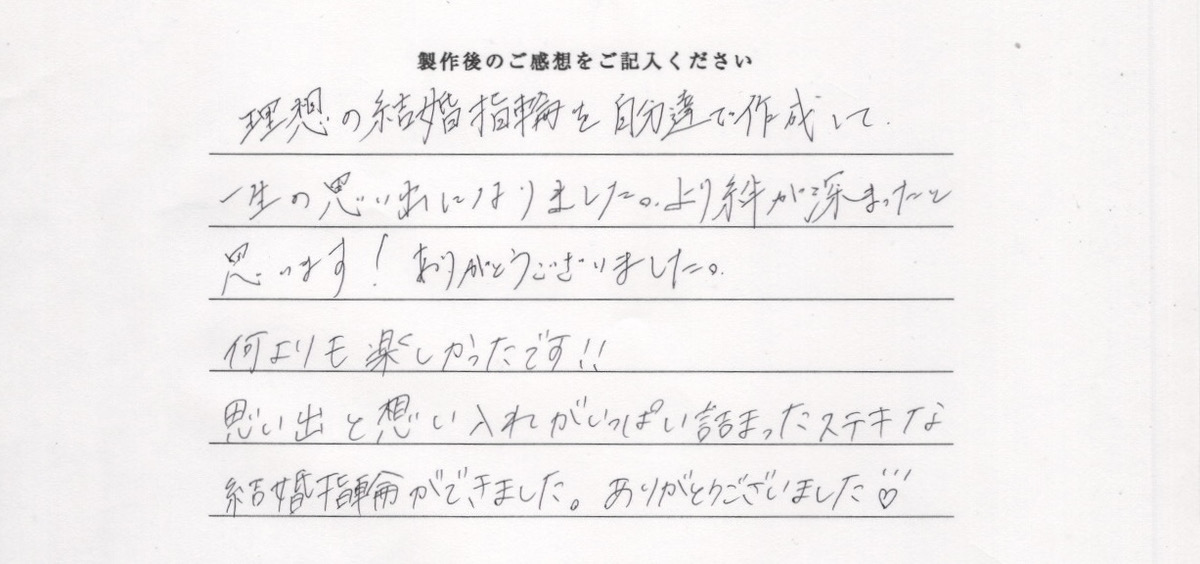 製作後のご感想をご記入ください
理想の結婚指輪を自分達で作成して、
一生の思い出になりました。より絆が深まったと
思います！ありがとうございました。
何よりも楽しかったです!!
思い出と想い入れがいっぱい詰まったステキな
結婚指輪ができました。ありがとうございました♡